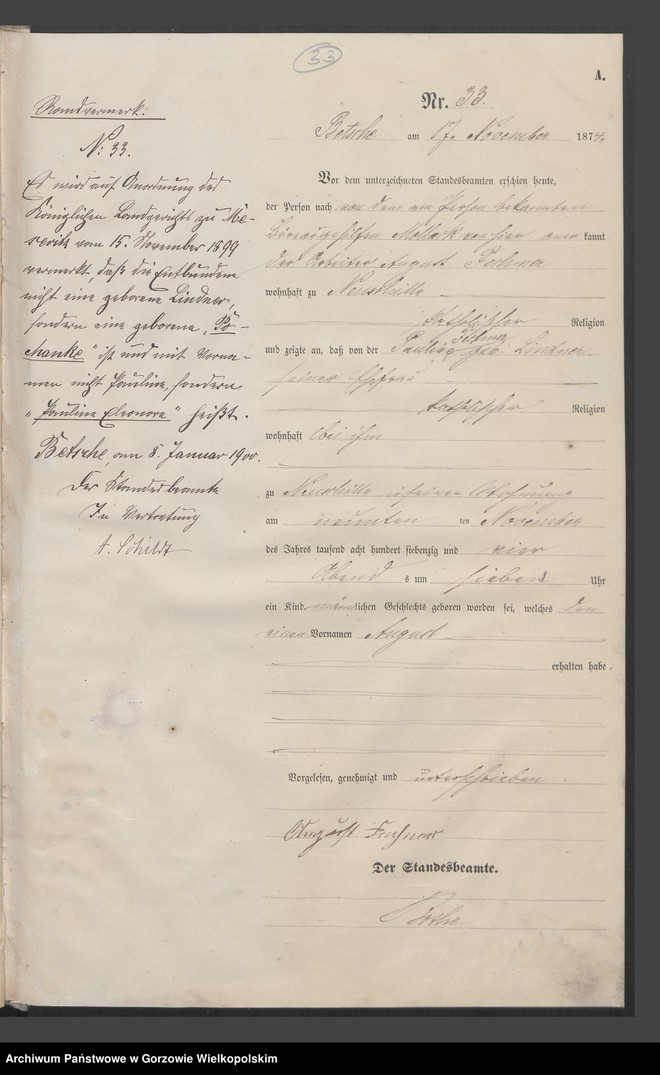 33
A.
Randvermerk:
N: 33.
Es wird auf Anordnung des
Königlichen Landgerichts zu Me-
seritz vom 15. November 1899
vermerkt, daß die Entbundene
nicht eine geborene Lindner,
sondern eine geborene „
" ist und mit Vorna-
men nicht Pauline, sondern
„Pauline Eleonore" heißt.
Betsche, am 8. Januar 1900.
Der Standesbeamte
In Vertretung
A. Schildt
Nr. 33.
Betsche am 17. November 1874.
Vor dem unterzeichneten Standesbeamten erschien heute,
der Person nach von dem von Person bekannten
von hier aner kannt
der Arbeiter August
wohnhaft zu
katholischer Religion
und zeigte an, daß von der Pauline geb. Lindner
seiner Ehefrau
katholischer Religion
wohnhaft bei ihm
zu in seiner Wohnung
am neunten ten November
des Jahres tausend acht hundert siebenzig und vier
Abend s um sieben Uhr
ein Kind männlichen Geschlechts geboren worden sei, welches den
einen Vornamen August
erhalten habe.
Vorgelesen, genehmigt und unterschrieben.
August
Der Standesbeamte.
Archiwum Państwowe w Gorzowie Wielkopolskim